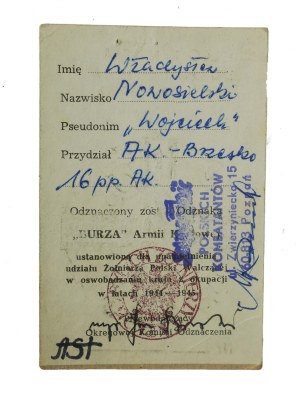 Imię Władysław
Nazwisko Nowosielski
Pseudonim „Wojciech"
Przydział AK-Brzesko
16 pp. AK.
Odznaczony został Odznaką
„BURZA" Armii Krajowej
ustanowioną dla upamiętnienia
udziału Żołnierza Polski Walczącej
w oswobadzaniu kraju z okupacji
w latach 1944—1945
Przewodniczący
Okręgowej Komisji Odznaczenia
POLSKICH
KOMBATANTÓW
ul. Zwierzyniecka 15
Poznań
AST